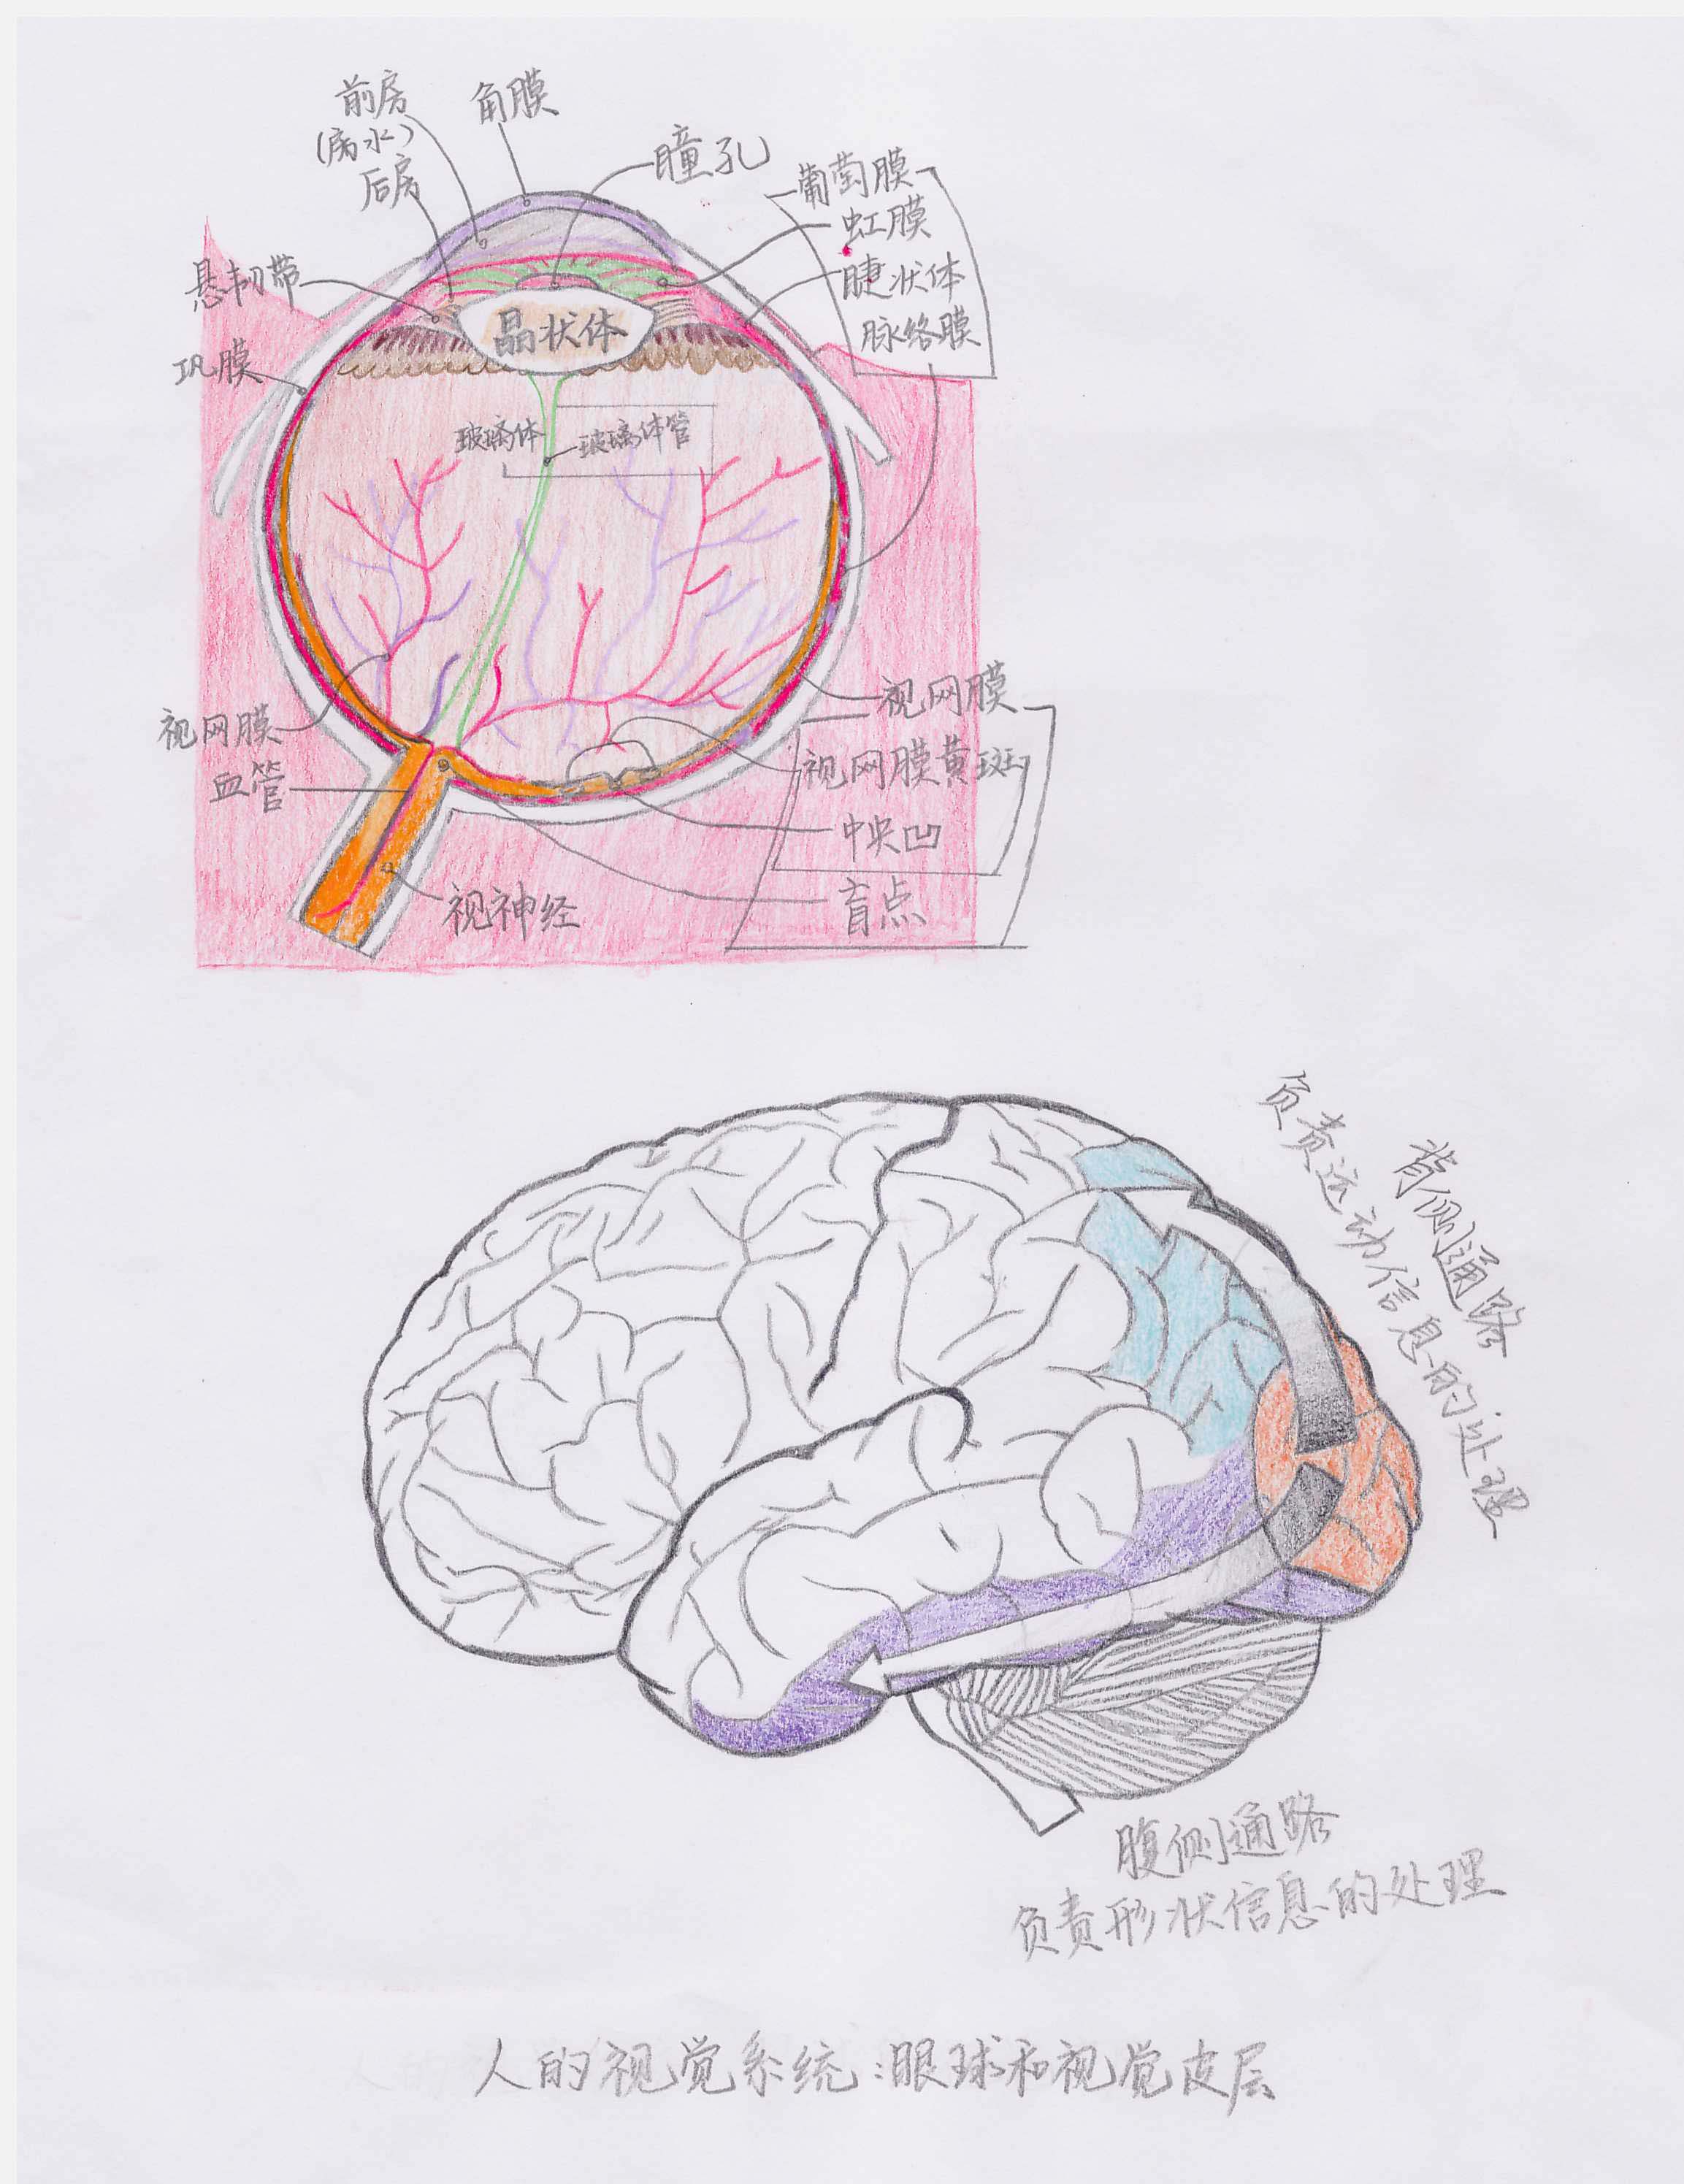 前房
角膜
(房水)
后房
瞳孔
葡萄膜
虹膜
睫状体
脉络膜
悬韧带
巩膜
晶状体
玻璃体
玻璃体管
视网膜
血管
视神经
视网膜
视网膜黄斑
中央凹
盲点
背侧通路
负责运动信息的处理
腹侧通路
负责形状信息的处理
人的视觉系统:眼球和视觉皮层